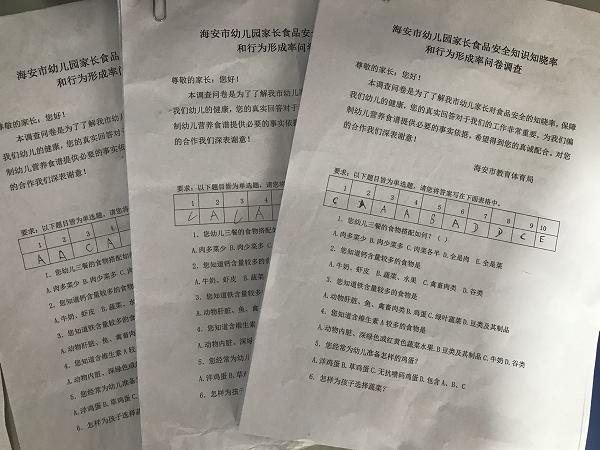 海安市幼儿园家长食品
和行为形成率问
尊敬的家长：您好！
本调查问卷是为了了解我市
我们幼儿的健康，您的真实回答
制幼儿营养食谱提供必要的事实
的合作我们深表谢意！
要求：以下题目皆为单选题，请您将
1 2 3 4
A A C A
1、您幼儿三餐的食物搭配如
A.肉多菜少 B.肉少菜多 C.
2、您知道钙含量较多的食物
A.牛奶、虾皮 B.蔬菜、水
3、您知道铁含量较多的食
A.动物肝脏、鱼、禽畜肉
4、您知道含维生素A较多
A.动物内脏、深绿色或
5、您经常为幼儿准备
A.洋鸡蛋 B.草鸡蛋 C.
6、怎样为孩子选择
海安市幼儿园家长食品安全
和行为形成率问卷
尊敬的家长：您好！
本调查问卷是为了了解我市幼儿
我们幼儿的健康，您的真实回答对于
制幼儿营养食谱提供必要的事实依
的合作我们深表谢意！
要求：以下题目皆为单选题，请您将答
1 2 3 4
A A
1、您幼儿三餐的食物搭配如何
A.肉多菜少 B.肉少菜多 C.肉
2、您知道钙含量较多的食物是
A.牛奶、虾皮 B.蔬菜
3、您知道铁含量较多的食物
A.动物肝脏、鱼、禽畜肉类
4、您知道含维生素A较多的
A.动物内脏、深绿色或红
5、您经常为幼儿准备怎样
A.洋鸡蛋 B.草鸡蛋 C.无
6、怎样为孩子选择蔬菜
海安市幼儿园家长食品安全知识知晓率
和行为形成率问卷调查
尊敬的家长：您好！
本调查问卷是为了了解我市幼儿家长对食品安全的知晓率，保障
我们幼儿的健康，您的真实回答对于我们的工作非常重要，为我们编
制幼儿营养食谱提供必要的事实依据，希望得到您的真诚配合，对您
的合作我们深表谢意！
海安市教育体育局
要求：以下题目皆为单选题，请您将答案写在下面表格中。
1 2 3 4 5 6 7 8 9 10
C A A A A D D C E
1、您幼儿三餐的食物搭配如何？（ ）
A.肉多菜少 B.肉少菜多 C.肉菜各半 D.全是肉 E.全是菜
2、您知道钙含量较多的食物是
A.牛奶、虾皮 B.蔬菜、水果 C.禽畜肉类 D.谷类
3、您知道铁含量较多的食物是
A.动物肝脏、鱼、禽畜肉类 B.鸡蛋 C.绿叶蔬菜 D.豆类及其制品
4、您知道含维生素A较多的食物是
A.动物内脏、深绿色或红黄色蔬菜水果 B.豆类及其制品 C.牛奶 D.谷类
5、您经常为幼儿准备怎样的鸡蛋？
A.洋鸡蛋 B.草鸡蛋 C.无抗喷码鸡蛋 D.包含A、B、C
6、怎样为孩子选择蔬菜？